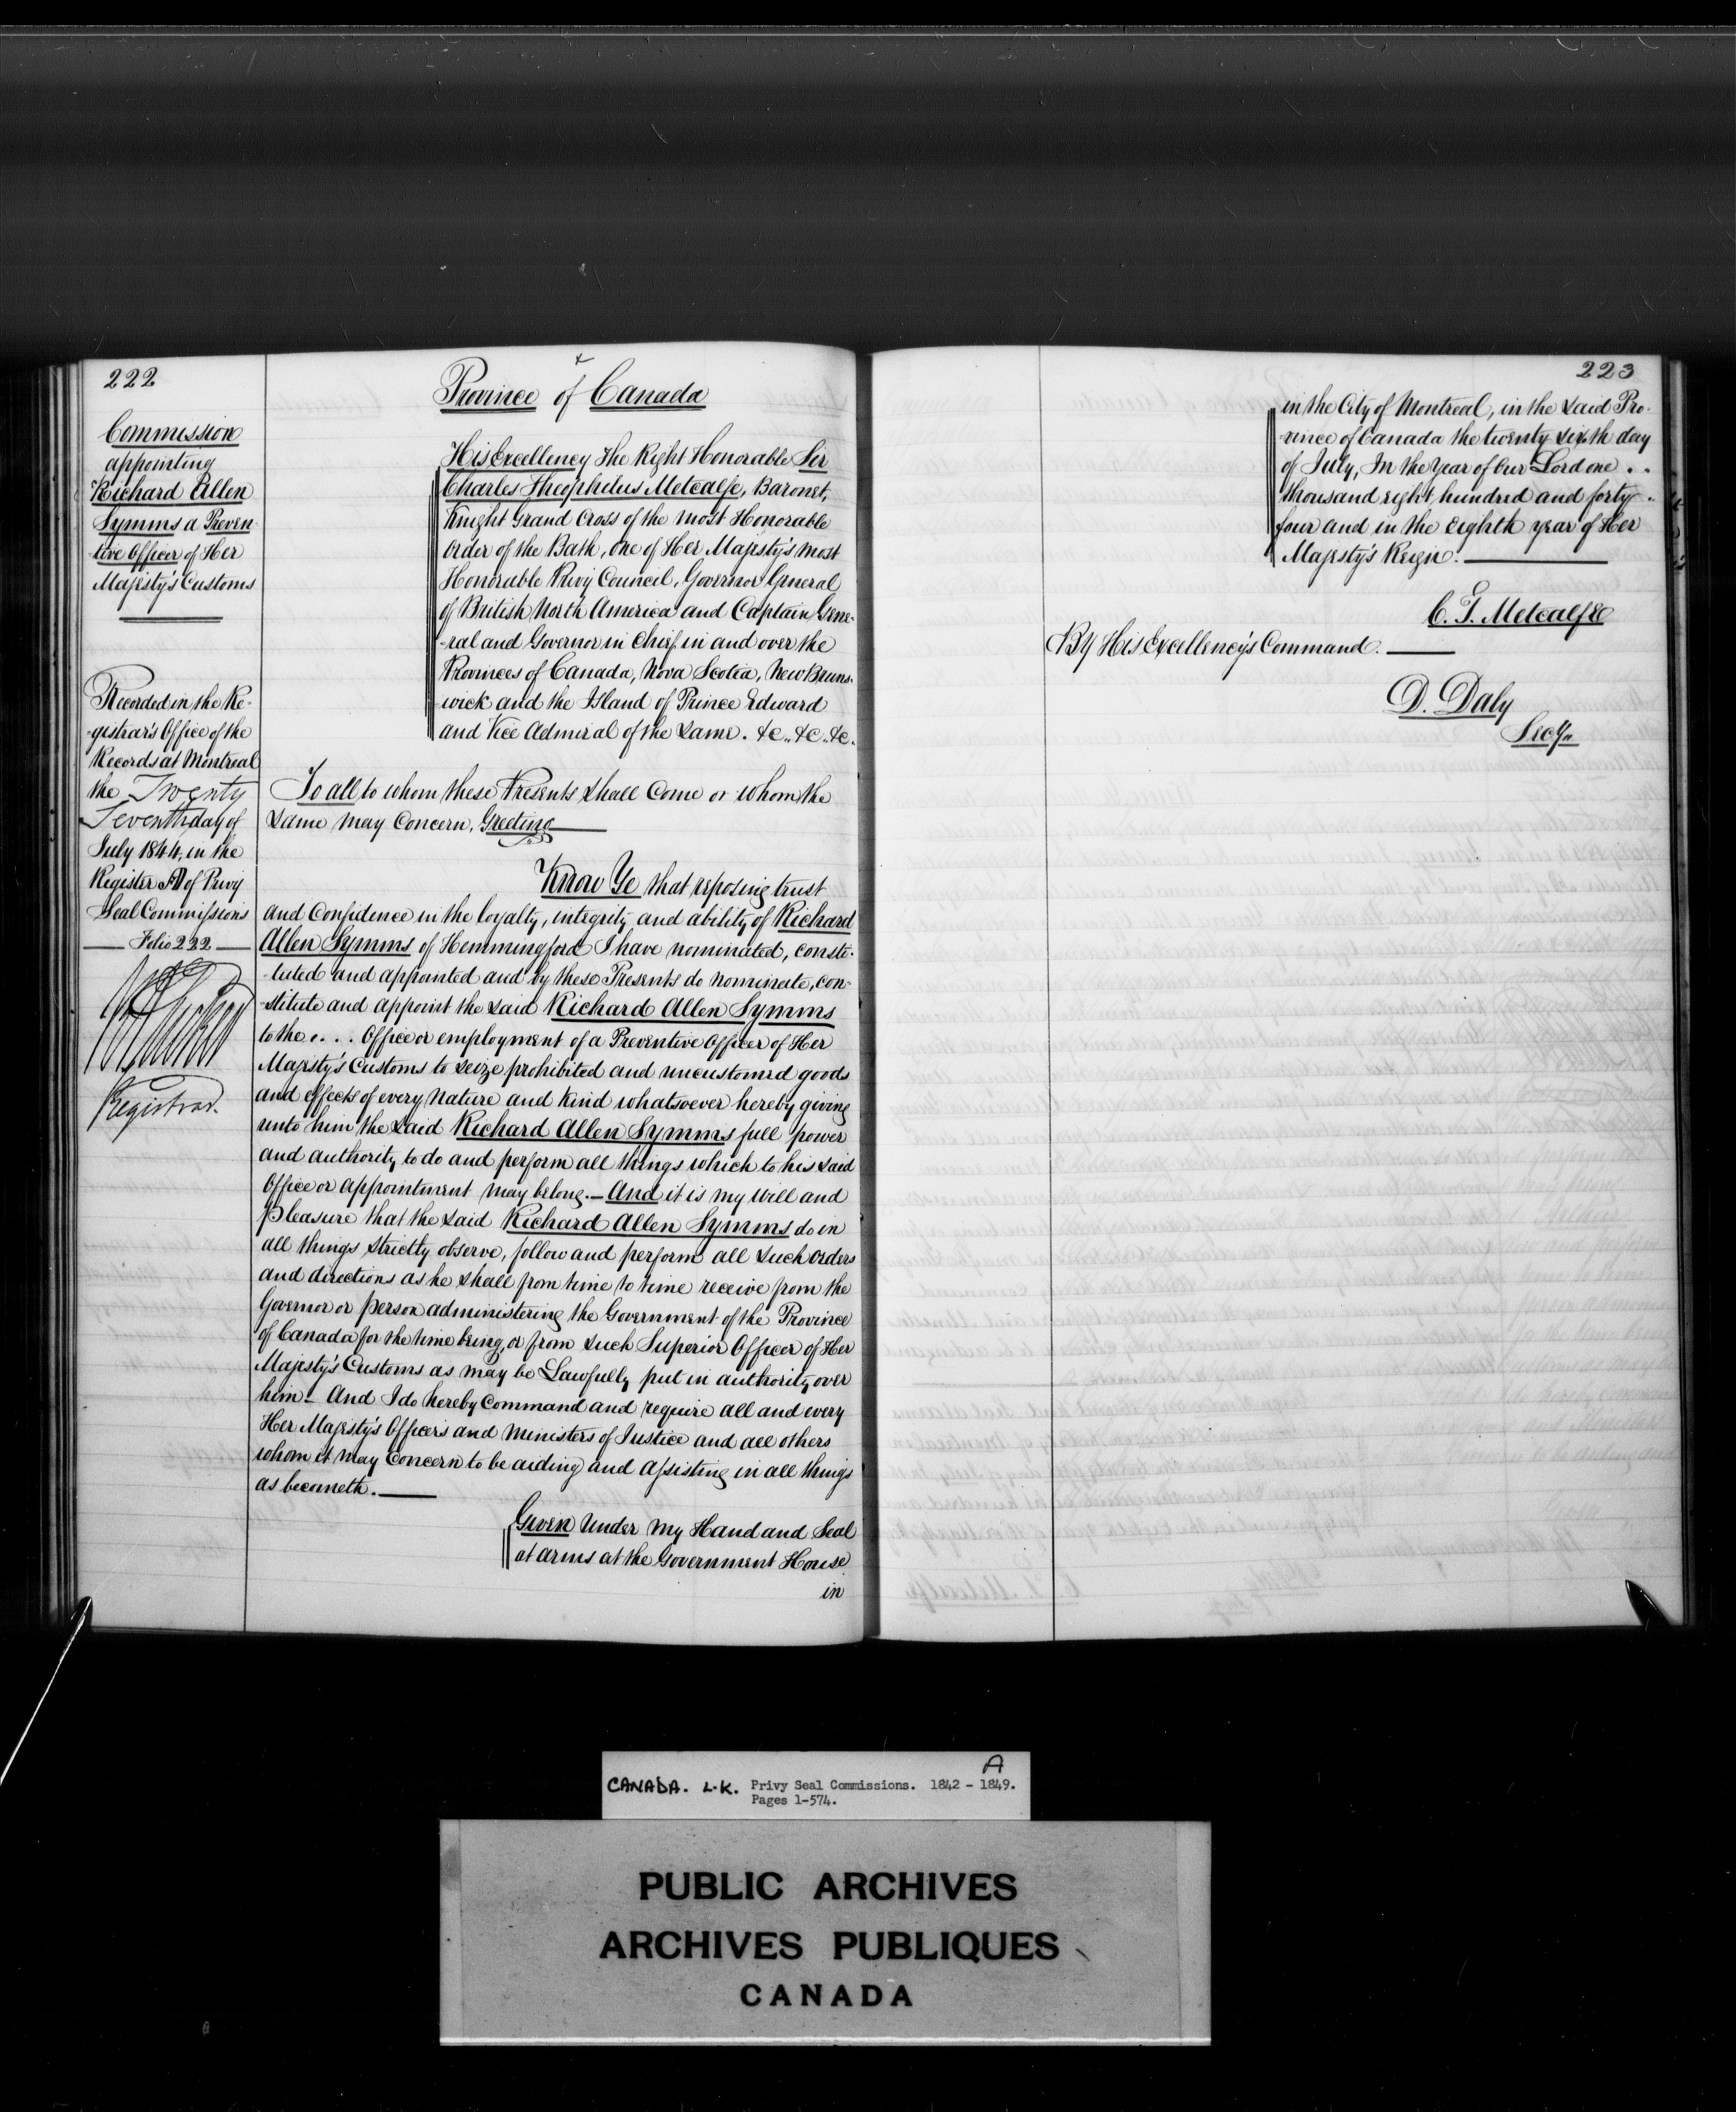 222
Commission
appointing
Richard Allen
Symms a Preven-
-tive Officer of Her
Majesty's Customs
Recorded in the Re-
-gistrar's Office of the
Records at Montreal
the Twenty
Seventh day of
July 1844, in the
Register A of Privy
Seal Commissions
Folio 222
Registrar.
Province of Canada
His Excellency The Right Honorable Sir
Charles Theophilus Metcalfe, Baronet,
Knight Grand Cross of the most Honorable
Order of the Bath, one of Her Majesty's most
Honorable Privy Council, Governor General
of British North America and Captain Gene-
-ral and Governor in Chief in and over the
Provinces of Canada, Nova Scotia, New Bruns-
wick and the Island of Prince Edward
and Vice Admiral of the same. &c. &c. &c.
To all to whom these Presents shall Come or whom the
same may Concern, Greeting
Know Ye that reposing trust
and Confidence in the loyalty, integrity and ability of Richard
Allen Symms of Hemmingford I have nominated, consti-
-tuted and appointed and by these Presents do nominate, con-
-stitute and appoint the said Richard Allen Symms
to the . . . . Office or employment of a Preventive Officer of Her
Majesty's Customs to seize prohibited and uncustomed goods
and effects of every nature and kind whatsoever hereby giving
unto him the said Richard Allen Symms full power
and authority to do and perform all things which to his said
Office or appointment may belong. — And it is my will and
pleasure that the said Richard Allen Symms do in
all things strictly observe, follow and perform all such orders
and directions as he shall from time to time receive from the
Governor or person administering the Government of the Province
of Canada for the time being, or from such Superior Officer of Her
Majesty's Customs as may be Lawfully put in authority over
him — And I do hereby Command and require all and every
Her Majesty's Officers and Ministers of Justice and all others
whom it may Concern to be aiding and assisting in all things
as becometh.
Given Under my Hand and Seal
at arms at the Government House
in
223
in the City of Montreal, in the said Pro-
-vince of Canada the twenty sixth day
of July, In the Year of Our Lord one . .
thousand eight hundred and forty .
four and in the Eighth year of Her
Majesty's Reign.
C. T. Metcalfe
By His Excellency's Command.
D. Daly
Secy.
A
CANADA. L.K. Privy Seal Commissions. 1842 - 1849.
Pages 1-574.
PUBLIC ARCHIVES
ARCHIVES PUBLIQUES
CANADA